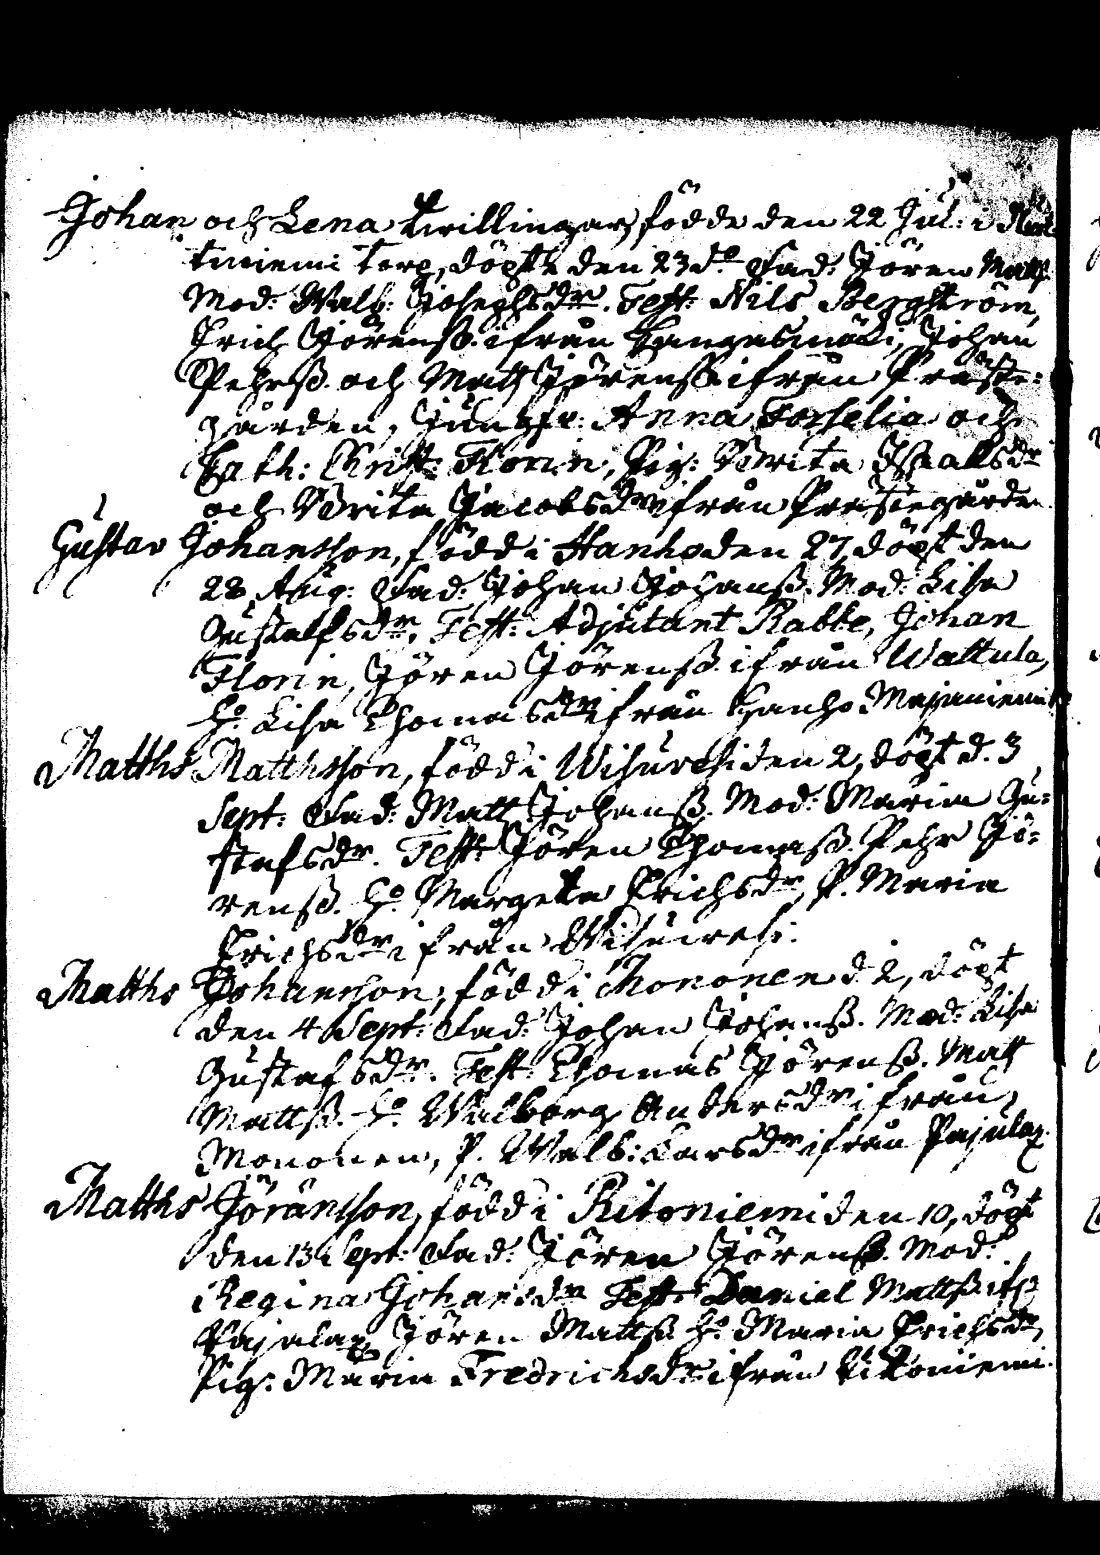 Johan och Lena twillingar, födde den 22 Jul: i
tiniemi torp, döpte den 23 d:o Fad: Jören Matts:
Mod: Walb: Josephsdr. Test: Nils Bergström,
Erich Jörenß. ifrån Kangasmäki, Johan
Pehrß. och Matts Jörenß ifrån Präste-
gården, Jungfr: Anna Forselia och
Cath: Christ: Florin, Pig: Brita Isaaksdr
och Brita Jacobsdr ifrån Prästegården.
Gustav Johansson, född i Hanho den 27, döpt den
28 Aug: Fad: Johan Johanß. Mod: Lisa
Gustafsdr. Test: Adjutant Rabbe, Johan
Florin, Jören Jörenß. ifrån Wattula,
H:o Lisa Thomasdr ifrån Hanho Majaniemi
Matths Matthsson, född i Wisuvesi den 2, döpt d. 3
Sept: Fad: Matts Johanß. Mod: Maria Gu-
stafsdr. Test: Jören Thomaß. Pehr Jö-
renß. H:o Margeta Erichsdr, P. Maria
Erichsdr ifrån Wisuvesi.
Matths Johansson, född i Mononen d 2, döpt
den 4 Sept: Fad: Johan Johanß. Mod: Lisa
Gustafsdr. Test: Thomas Jörenß. Matts
Mattß. H:o Walborg Andersdr ifrån
Mononen, P. Walb: Larsdr ifrån Pajulax.
Matths Jöransson, född i Ritoniemi den 10, döpt
den 13 Sept: Fad: Jören Jörenß. Mod:
Regina Johansdr Test: Daniel Mattß. ifr:
Pajulax, Jören Mattß. H:o Maria Erichsdr,
Pig: Maria Fredrichsdr ifrån Ritoniemi.